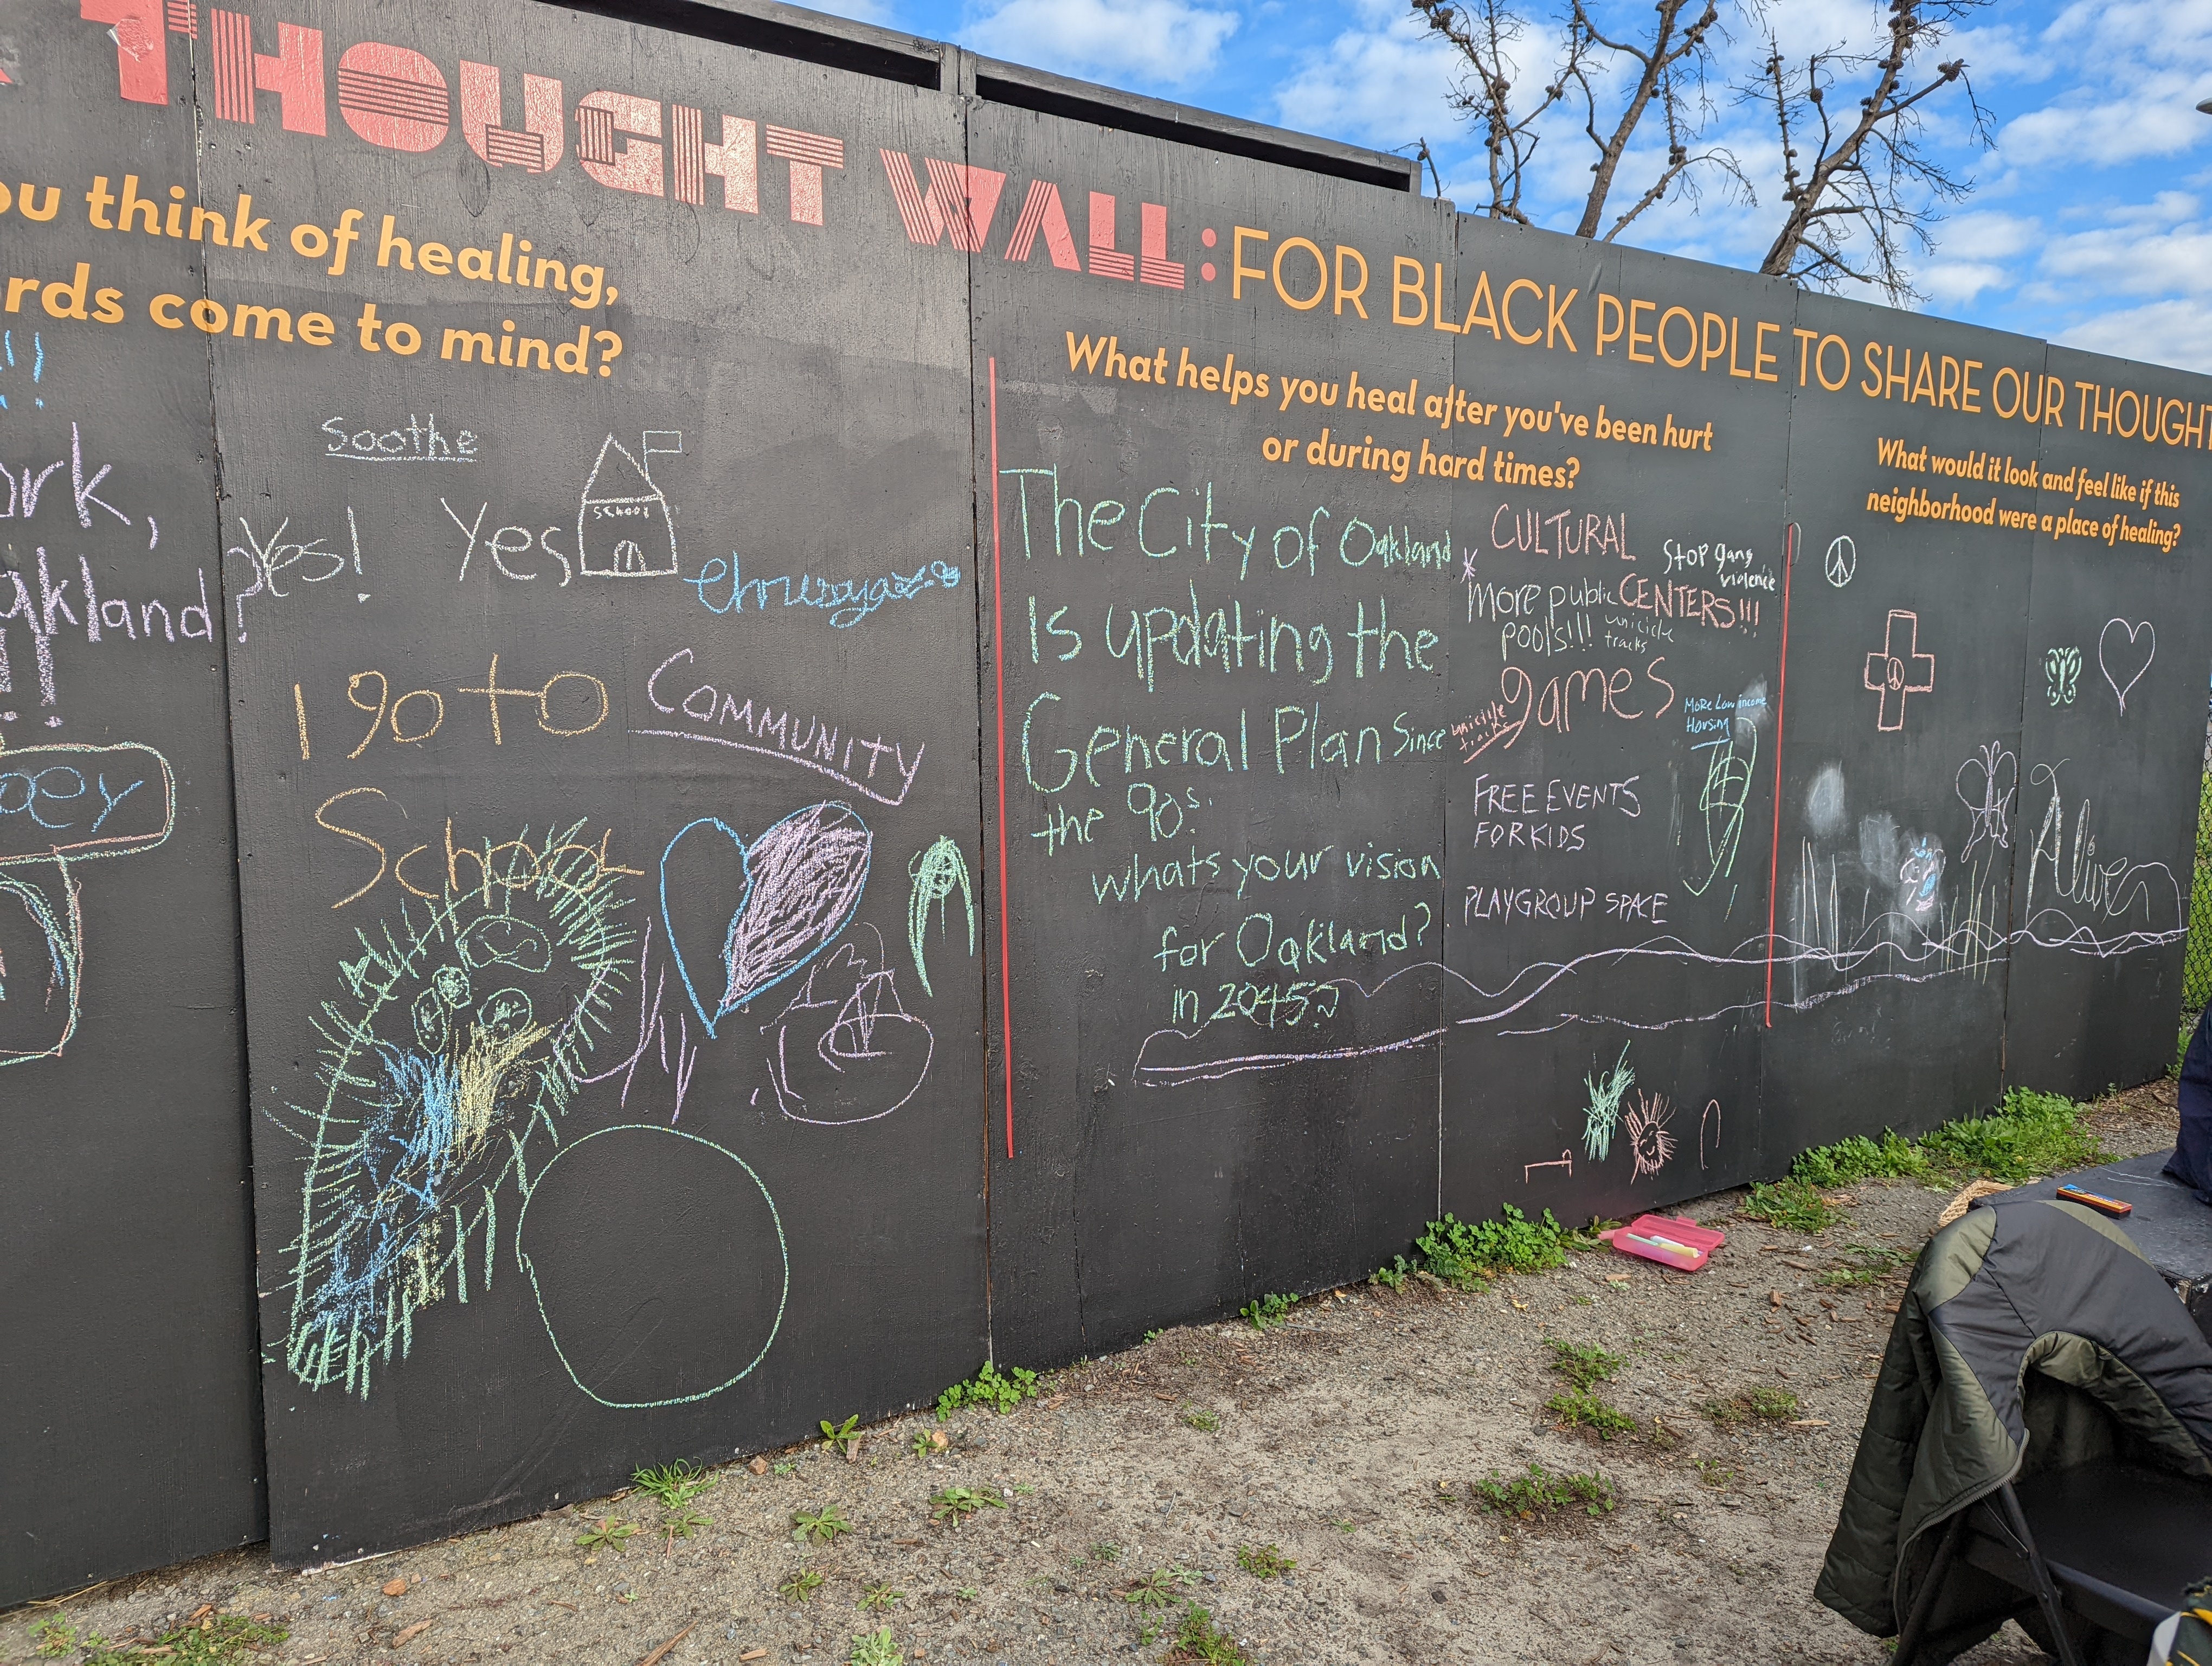 THOUGHT WALL: FOR BLACK PEOPLE TO SHARE OUR THOUGHT
ou think of healing,
rds come to mind?
!!
ork,
akland?
!!
Soothe
Yes!
Yes
SCHOOL
COMMUNITY
I go to
School
What helps you heal after you've been hurt
or during hard times?
The City of Oakland
Is updating the
General Plan Since
the 90s.
whats your vision
for Oakland?
in 2045?
CULTURAL
CENTERS!!!
Stop gang
violence
* more public
pools!!!
unicicle
tracks
games
unicicle
tracks
MoRe Low income
Housing
FREE EVENTS
FOR KIDS
PLAYGROUP SPACE
What would it look and feel like if this
neighborhood were a place of healing?